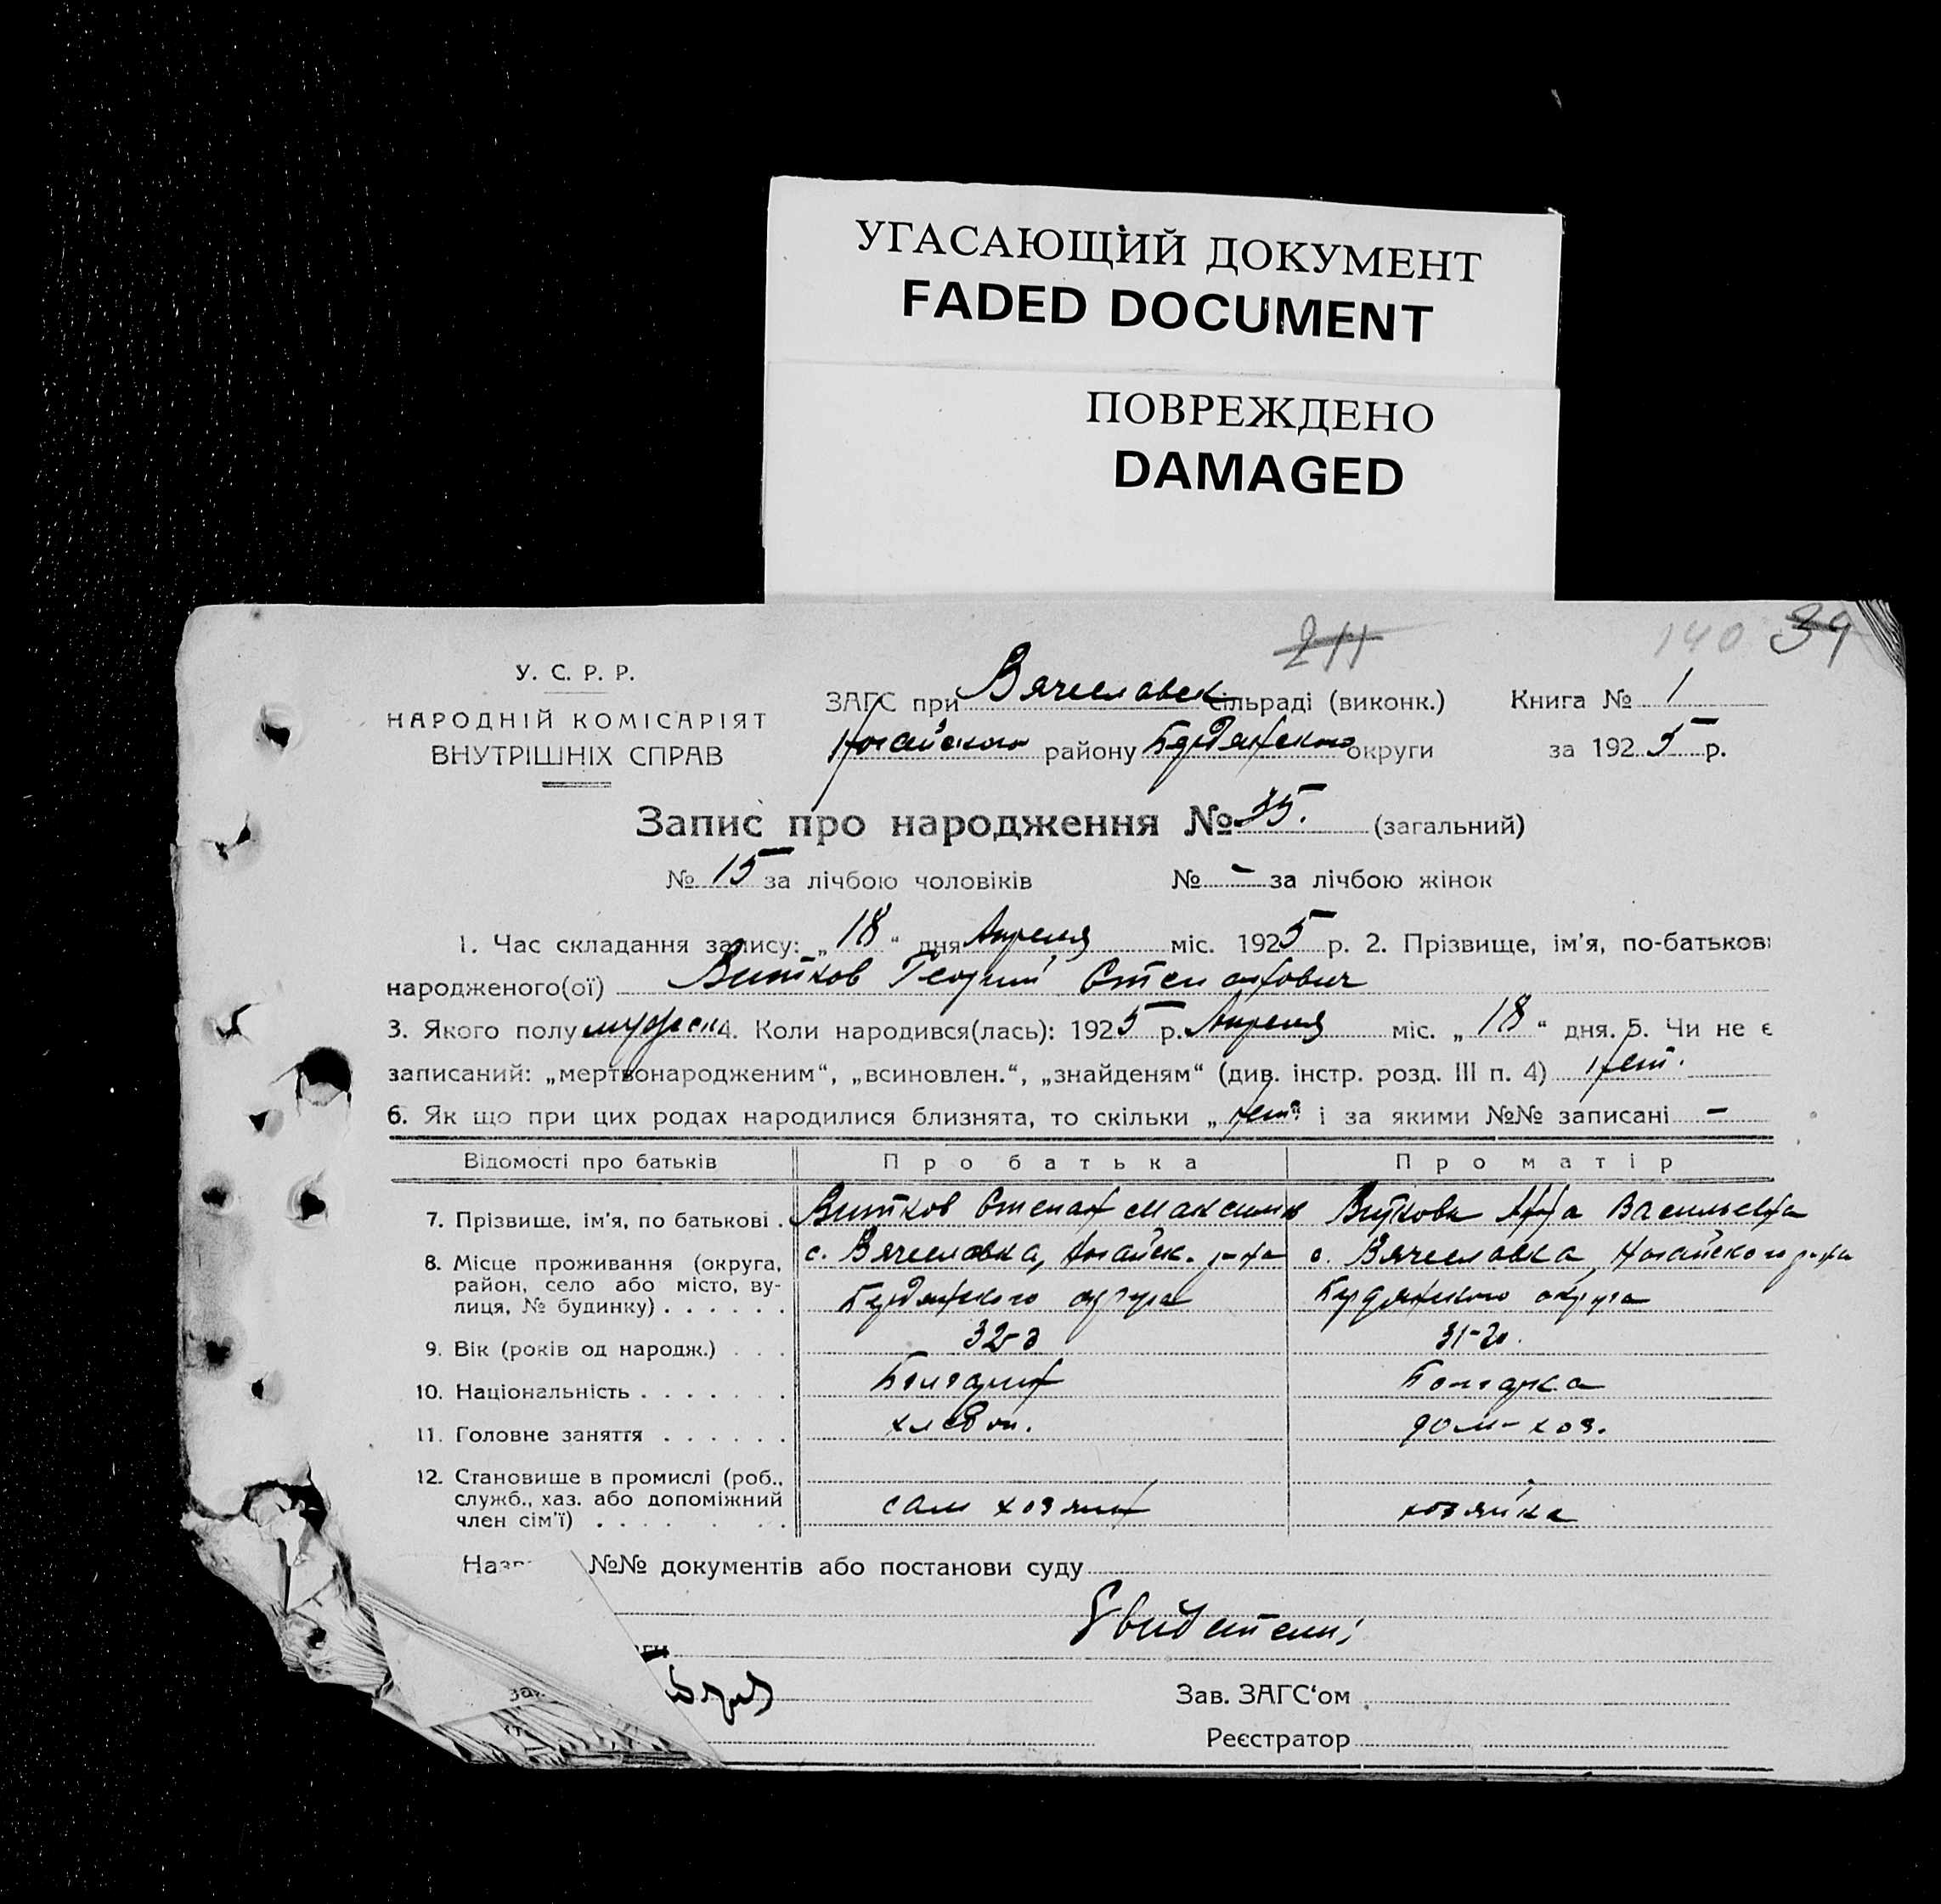 УГАСАЮЩИЙ ДОКУМЕНТ
FADED DOCUMENT
ПОВРЕЖДЕНО
DAMAGED
211
140 39
У. С. Р. Р.
НАРОДНІЙ КОМІСАРІЯТ
ВНУТРІШНІХ СПРАВ
ЗАГС при Вячеславск сільраді (виконк.) Книга № 1
Ногайского району Бердянского округи за 1925 р.
Запис про народження № 35. (загальний)
№ 15 за лічбою чоловіків № - за лічбою жінок
1. Час складання запису: „18“ дня Апреля міс. 1925 р. 2. Прізвище, ім'я, по-батькові
народженого(ої) Витков Георгий Степанович
3. Якого полу мужеск 4. Коли народився(лась): 1925 р. Апреля міс. „18“ дня. 5. Чи не є
записаний: „мертвонародженим“, „всиновлен.“, „знайденям“ (див. інстр. розд. III п. 4) Нет.
6. Як що при цих родах народилися близнята, то скільки „нет“ і за якими №№ записані -
Відомості про батьків Про батька Про матір
7. Прізвище, ім'я, по батькові . Витков Степан Максимов Виткова Анна Васильевна
8. Місце проживання (округа, район, село або місто, вулиця, № будинку) . . . . . . с. Вячеславка, Ногайск. р-на Бердянского округа с. Вячеславка, Ногайского р-на Бердянского округа
9. Вік (років од народж.) . . . 32-а 31-го.
10. Національність . . . . . . . Болгарин Болгарка
11. Головне заняття . . . . . . хлебоп. дом-хоз.
12. Становище в промислі (роб., служб., хаз. або допоміжний член сім'ї) . . . . . . сам хозяин хозяйка
№№ документів або постанови суду
Свидетели:
Зав. ЗАГС'ом
Реєстратор